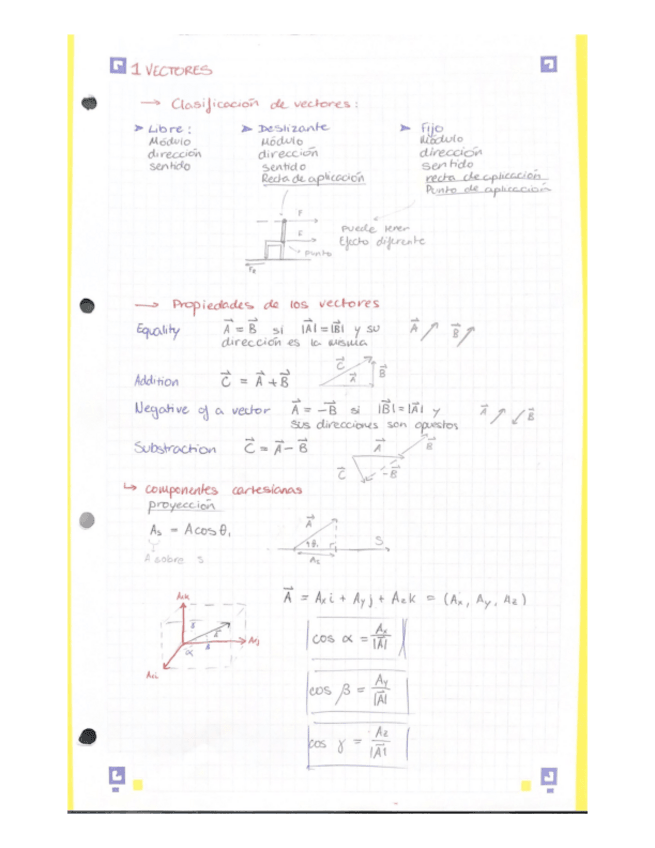 1 VECTORES
→ Clasificación de vectores:
➤ Libre:
Módulo
dirección
sentido
➤ Deslizante
Módulo
dirección
sentido
Recta de aplicación
➤ Fijo
Módulo
dirección
sentido
recta de aplicación
Punto de aplicación
F
F
Punto
Puede tener
Efecto diferente
→ Propiedades de los vectores
Equality A⃗ = B⃗ si |A⃗| = |B⃗| y su
dirección es la misma
A⃗ B⃗
Addition C⃗ = A⃗ + B⃗
C⃗ A⃗ B⃗
Negative of a vector A⃗ = -B⃗ si |B⃗| = |A⃗| y
sus direcciones son opuestas
A⃗ B⃗
Substraction C⃗ = A⃗ - B⃗
A⃗ B⃗
C⃗ -B⃗
↳ componentes cartesianas
proyección
As = A cos θ,
A sobre S
A⃗ θ S
As
A⃗ = Axi + Ayj + Azk = (Ax, Ay, Az)
Azk
Ayj
Axi
α
cos α = Ax/|A⃗|
cos β = Ay/|A⃗|
cos γ = Az/|A⃗|